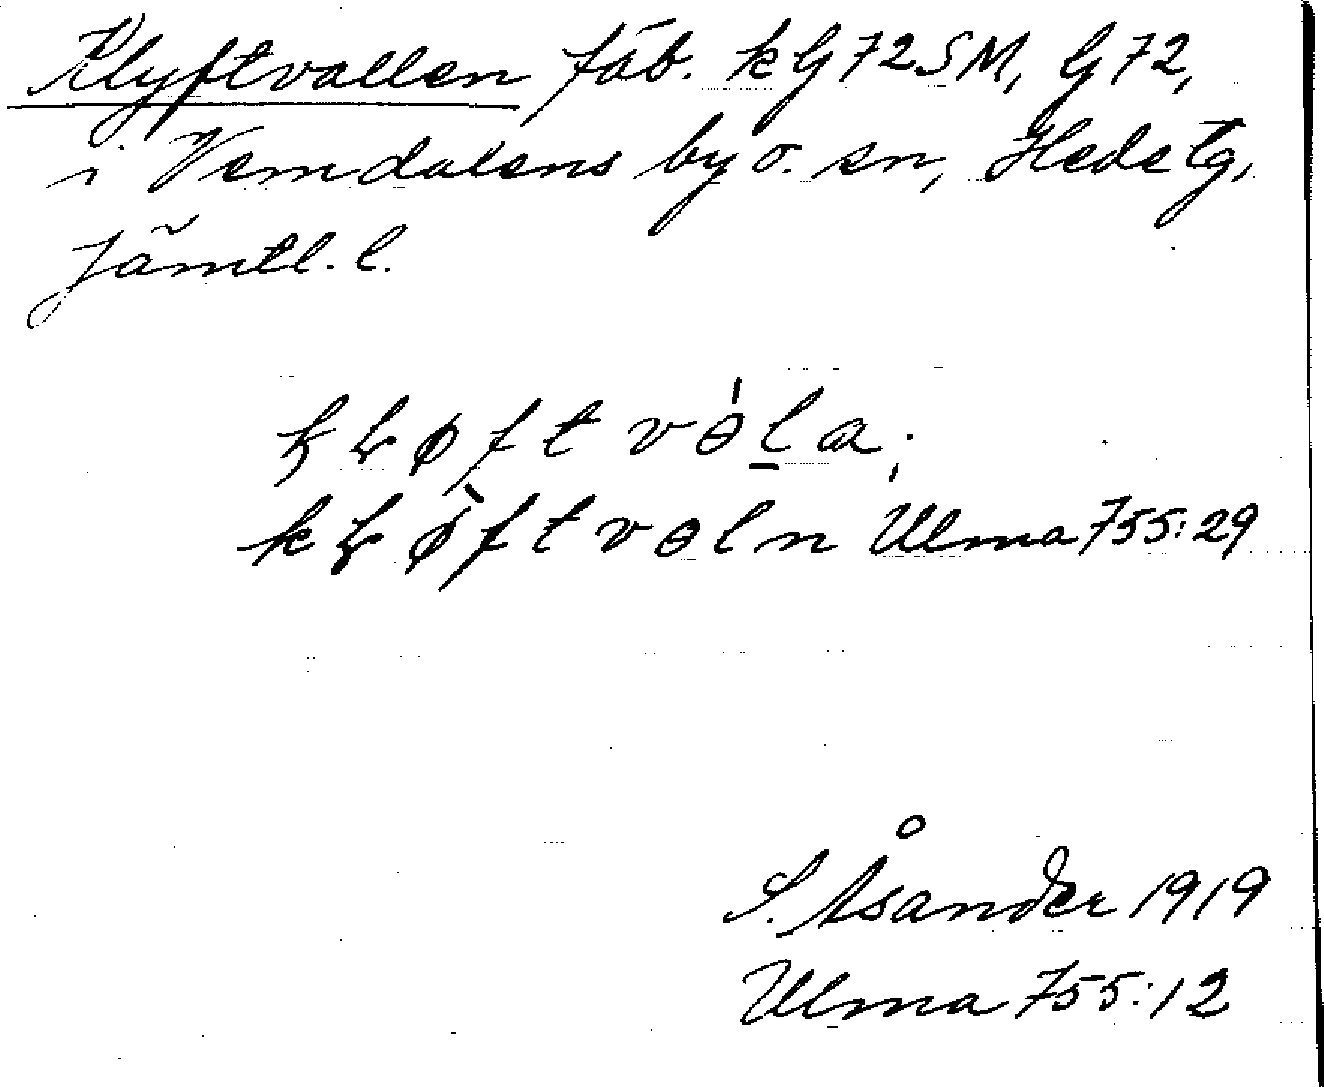 Klyftvallen fäb. kG72SM, G72,
i Vemdalens by o. sn, Hede tg,
Jämtl. l.
Ulma 755:29
S. Åsander 1919
Ulma 755:12